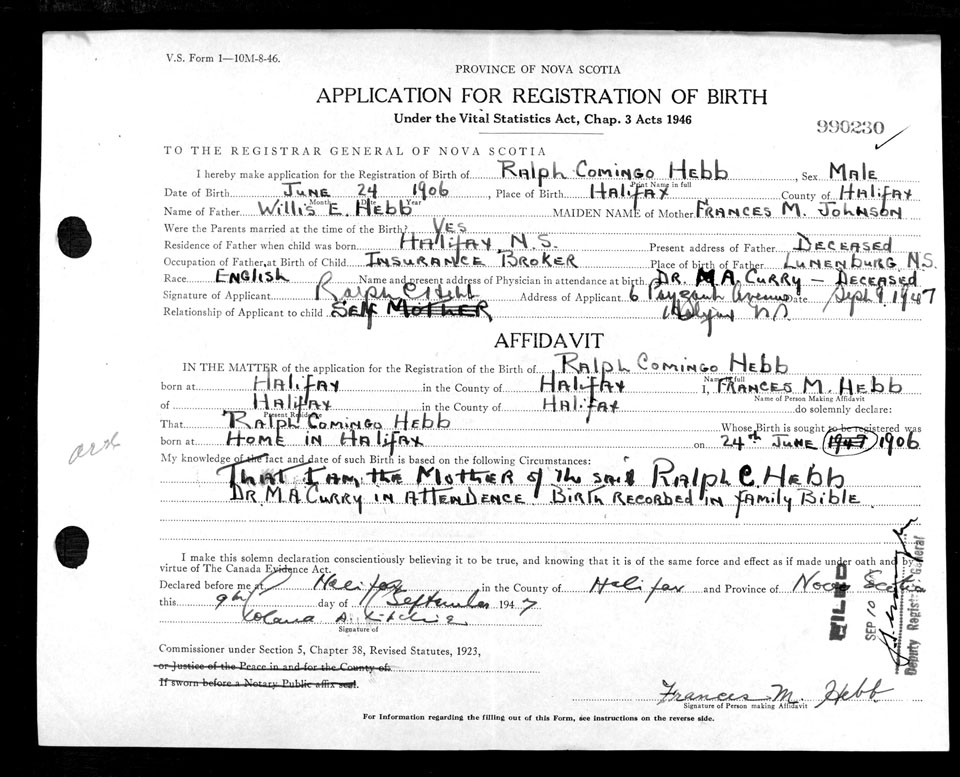 V.S. Form 1—10M-8-46.
PROVINCE OF NOVA SCOTIA
APPLICATION FOR REGISTRATION OF BIRTH
Under the Vital Statistics Act, Chap. 3 Acts 1946
990230
TO THE REGISTRAR GENERAL OF NOVA SCOTIA
I hereby make application for the Registration of Birth of Ralph Comingo Hebb, Sex Male
Print Name in full
Date of Birth June 24 1906, Place of Birth Halifax County of Halifax
Month Date Year
Name of Father Willis E. Hebb MAIDEN NAME of Mother Frances M. Johnson
Were the Parents married at the time of the Birth? Yes
Residence of Father when child was born Halifax N.S. Present address of Father Deceased
Occupation of Father at Birth of Child Insurance Broker Place of birth of Father Lunenburg N.S.
Race English Name and present address of Physician in attendance at birth Dr. M.A. Curry — Deceased
Signature of Applicant Ralph C Hebb Address of Applicant 6 Payzant Avenue Date Sept 9 1947
Relationship of Applicant to child Self Mother Halifax N.S.
AFFIDAVIT
IN THE MATTER of the application for the Registration of the Birth of Ralph Comingo Hebb
born at Halifax in the County of Halifax I, Frances M. Hebb
Name in full
of Halifax in the County of Halifax do solemnly declare:
Name of Person Making Affidavit
Present Residence
That Ralph Comingo Hebb Whose Birth is sought to be registered was
born at Home in Halifax on 24th June 1947 1906
My knowledge of the fact and date of such Birth is based on the following Circumstances:
That I am the Mother of the said Ralph C. Hebb
Dr M.A. Curry in attendence Birth recorded in family Bible
I make this solemn declaration conscientiously believing it to be true, and knowing that it is of the same force and effect as if made under oath and by
virtue of The Canada Evidence Act.
Declared before me at Halifax in the County of Halifax and Province of Nova Scotia
this 9th day of September 1947
Signature of
Commissioner under Section 5, Chapter 38, Revised Statutes, 1923,
or Justice of the Peace in and for the County of
If sworn before a Notary Public affix seal.
FILED
SEP 10
Deputy Registrar General
Frances M. Hebb
Signature of Person making Affidavit
For Information regarding the filling out of this Form, see instructions on the reverse side.